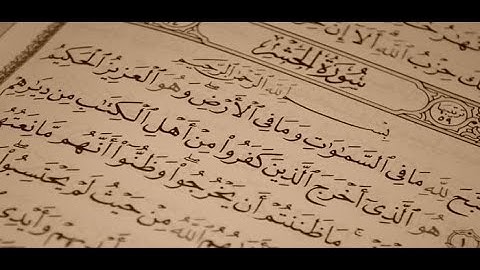 حِزْبُ ٱللَّهِ أَلَآ إِنَّ
سُورَةُ الحَشْرِ
بِسْمِ ٱللَّهِ ٱلرَّحْمَٰنِ ٱلرَّحِيمِ
لِلَّهِ مَا فِى ٱلسَّمَٰوَٰتِ وَمَا فِى ٱلْأَرْضِ وَهُوَ ٱلْعَزِيزُ ٱلْحَكِيمُ
هُوَ ٱلَّذِىٓ أَخْرَجَ ٱلَّذِينَ كَفَرُوا۟ مِنْ أَهْلِ ٱلْكِتَٰبِ مِن دِيَٰرِهِمْ
مَا ظَنَنتُمْ أَن يَخْرُجُوا۟ وَظَنُّوٓا۟ أَنَّهُم مَّانِعَتُهُمْ
ٱللَّهُ مِنْ حَيْثُ لَمْ يَحْتَسِبُوا۟